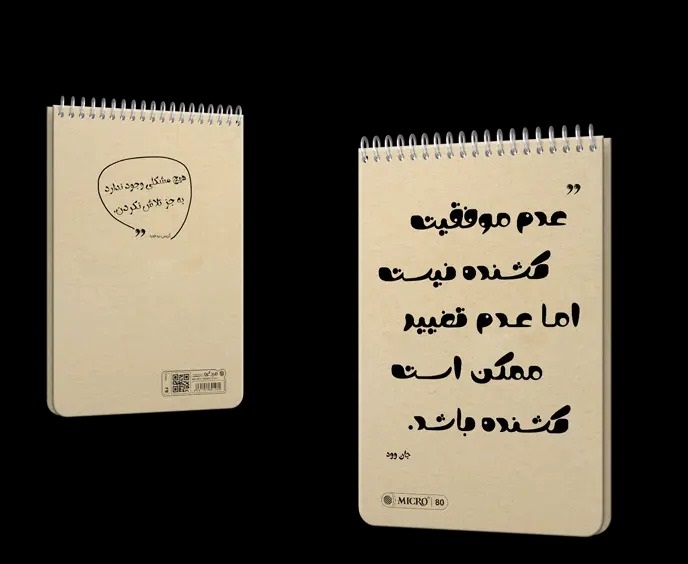 هیچ مشکلی وجود ندارد
به جز تلاش نکردن.
”
”
عدم موفقیت
کشنده نیست
اما عدم تغییر
ممکن است
کشنده باشد.
جان وود
MICRO 80